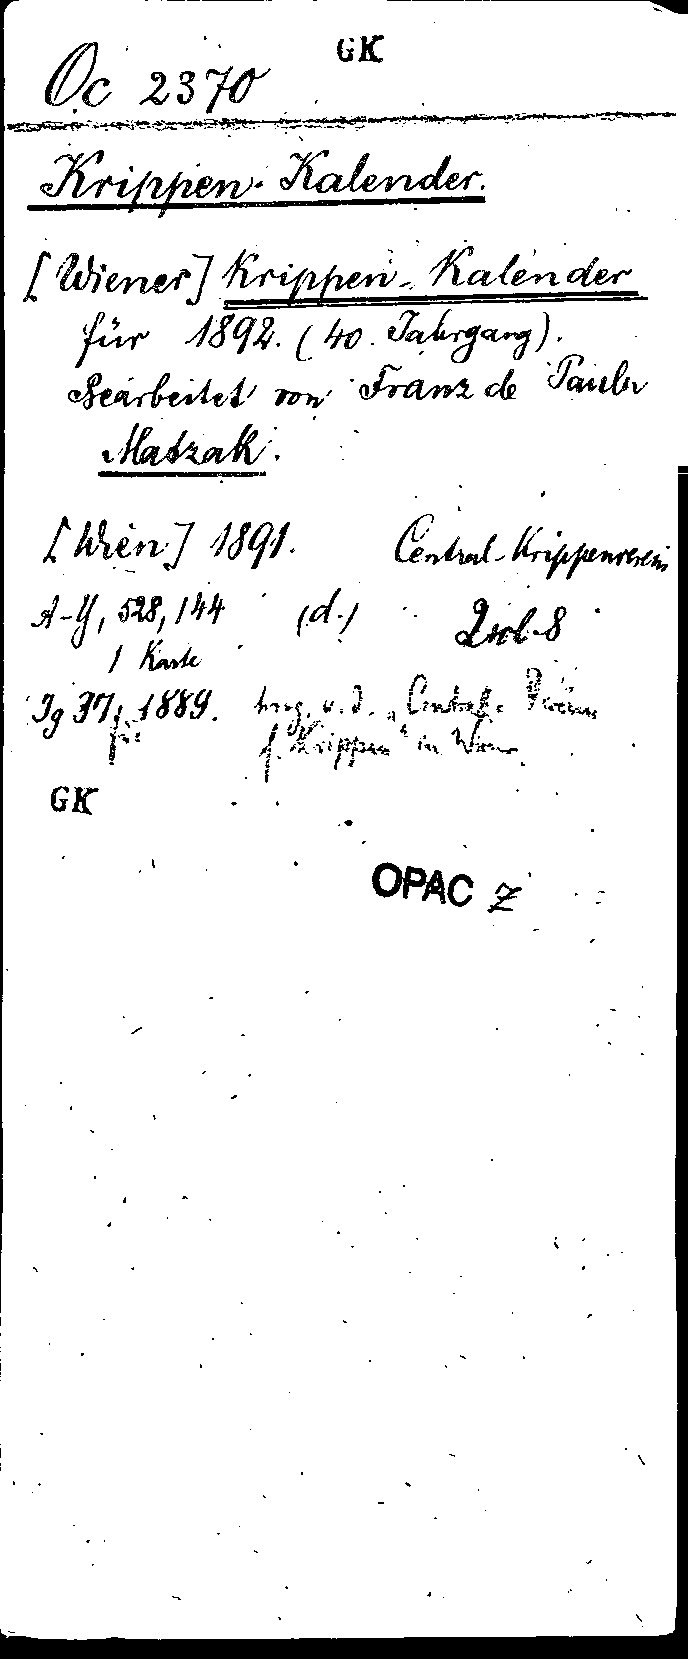 GK
Oc 2370
Krippen-Kalender.
[Wiener] Krippen-Kalender
für 1892. (40. Jahrgang).
Bearbeitet von Franz de Paula
Matzak.
[Wien] 1891. Central-Krippenverein
A-Y, 528, 144 (d.)
1 Karte
Jg 37, 1889. hrsg. v. d. „Central-Verein
für f. Krippen" in Wien
GK
OPAC Z